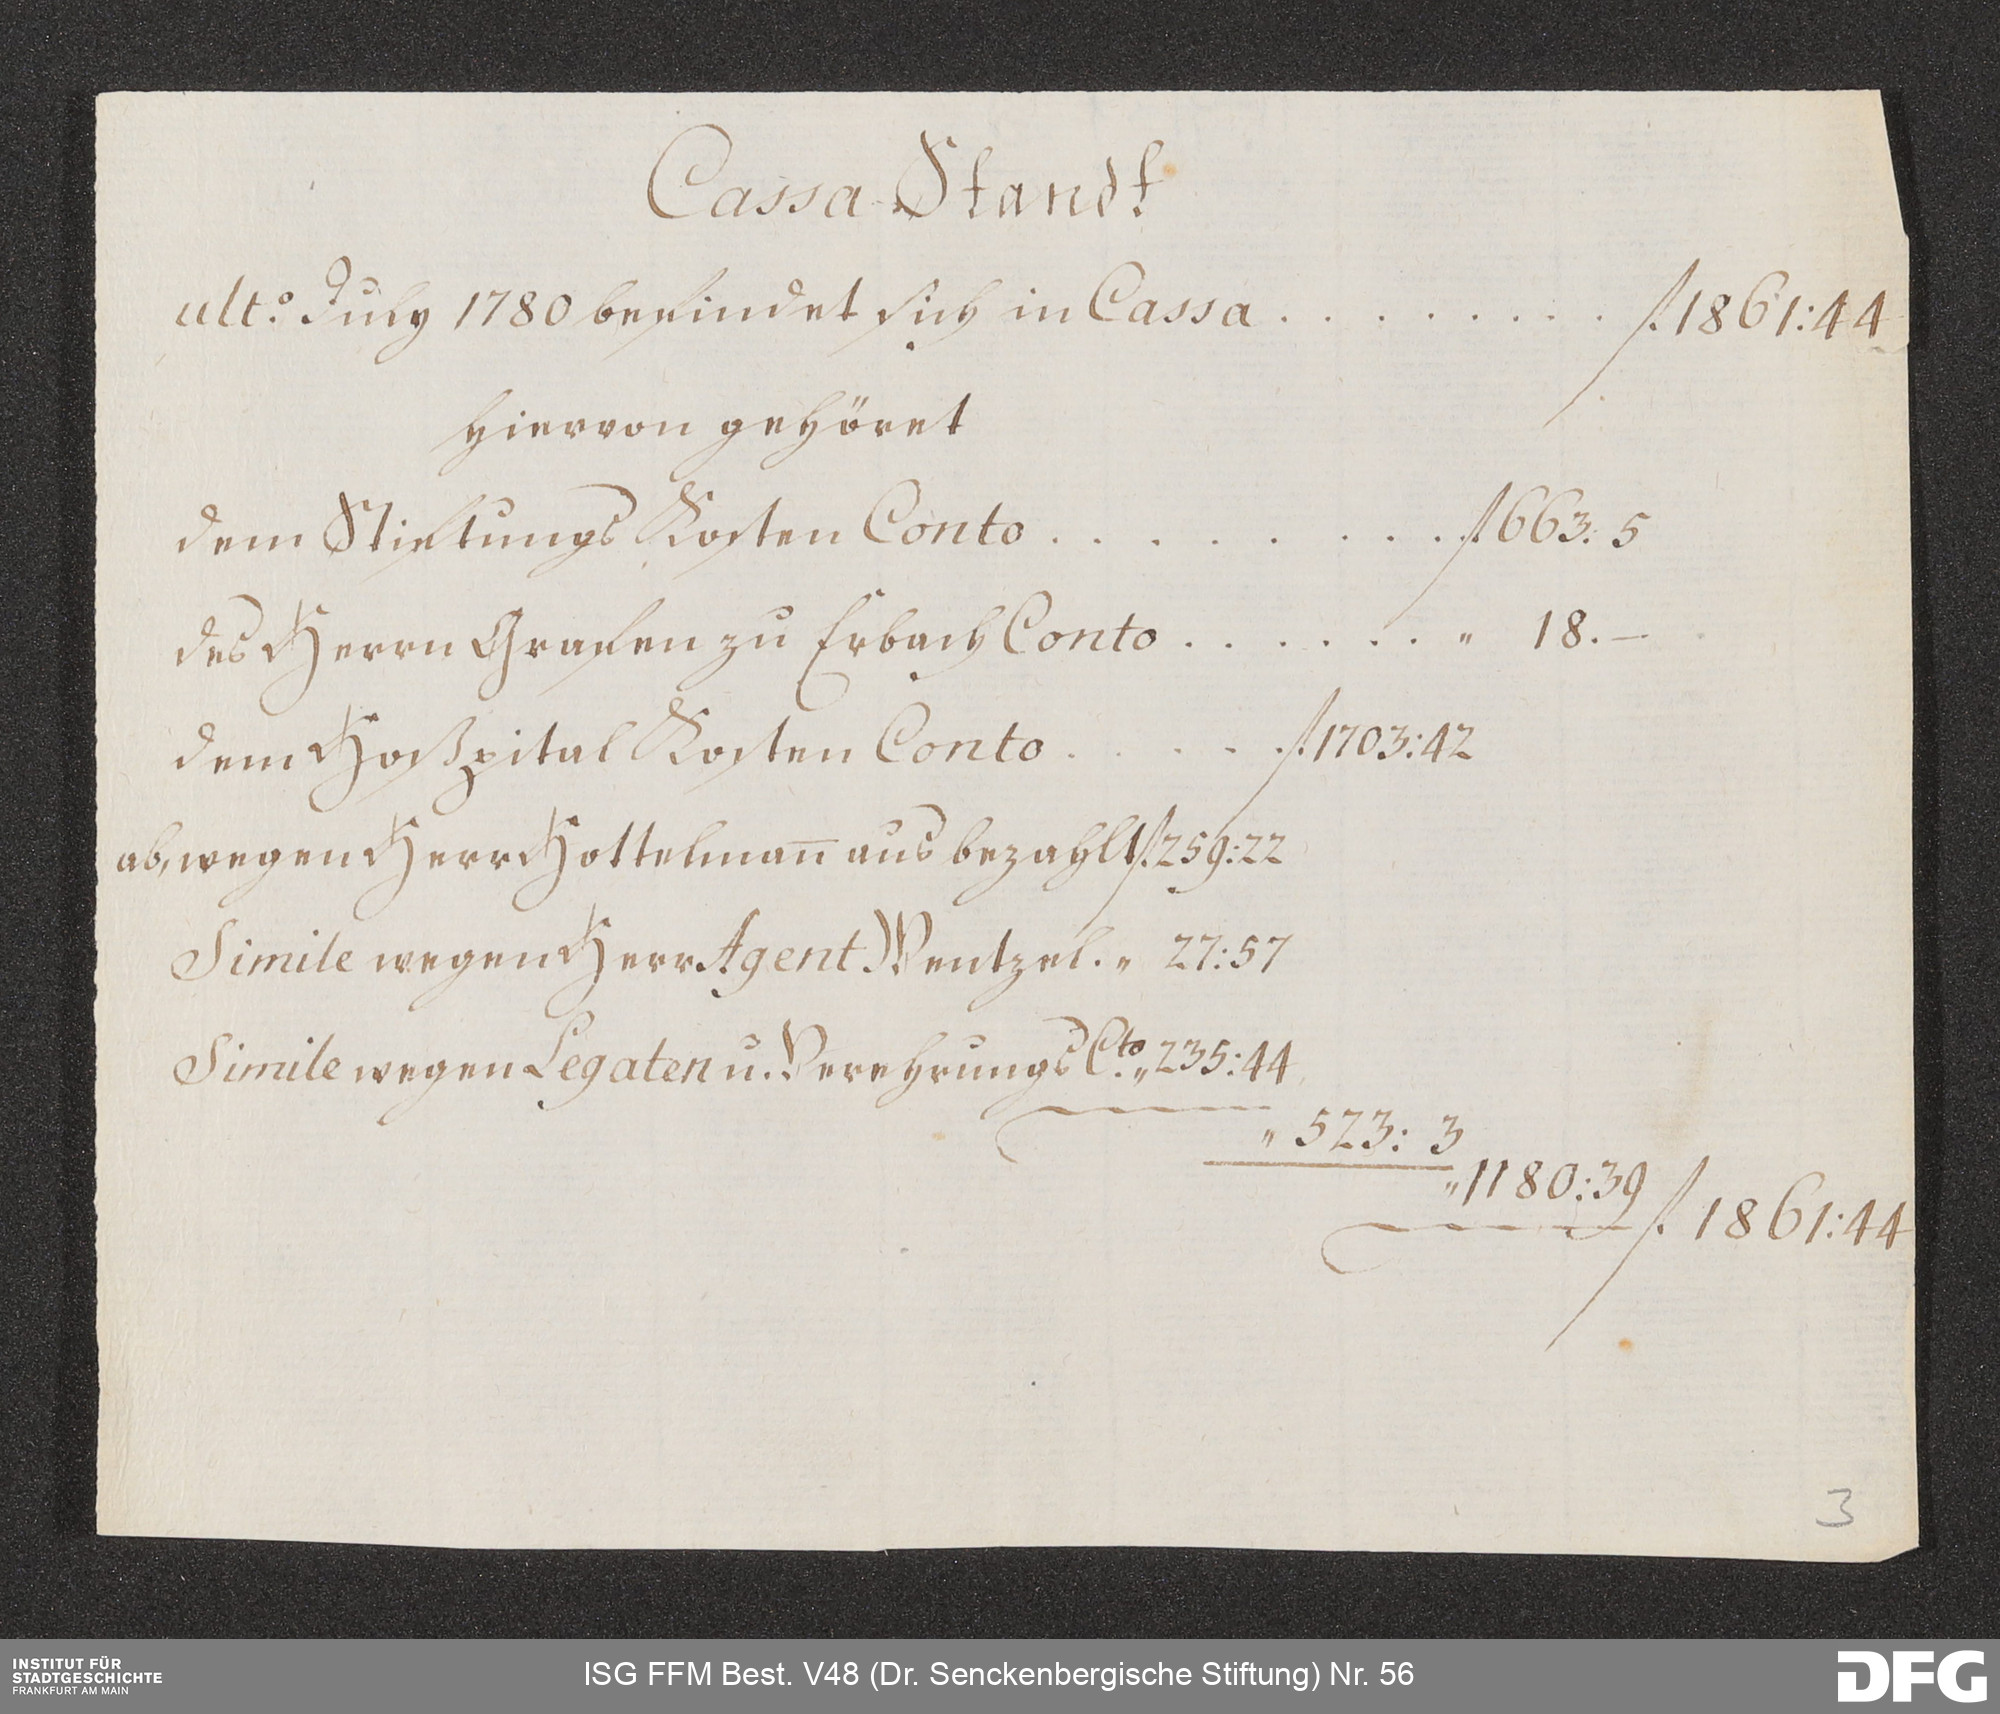 Cassa-Standt
ult.o July 1780 befindet sich in Cassa . . . . . . . . f. 1861:44
hiervon gehöret
dem Stiftungs Kosten Conto . . . . . . . . f. 663: 5
des Herrn Grafen zu Erbach Conto . . . . . . „ 18. —
dem Hoßpital Kosten Conto . . . . . f. 1703:42
ab, wegen Herr Hottelman̅ aus bezahlt f. 259:22
Simile wegen Herr Agent Wentzel. „ 27:57
Simile wegen Legaten u. Verehrungs Cto. „ 235:44
„ 523: 3
„ 1180:39 f. 1861:44
3
INSTITUT FÜR
STADTGESCHICHTE
FRANKFURT AM MAIN
ISG FFM Best. V48 (Dr. Senckenbergische Stiftung) Nr. 56
DFG